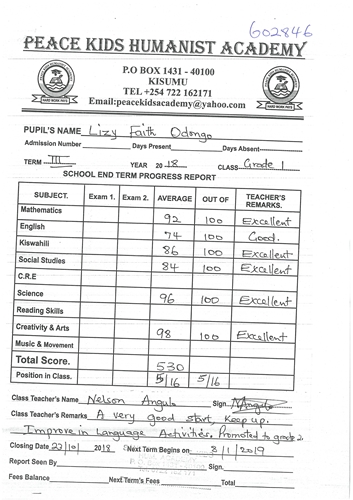 602846
PEACE KIDS HUMANIST ACADEMY
P.O BOX 1431 - 40100
KISUMU
TEL +254 722 162171
Email:peacekidsacademy@yahoo.com
HARD WORK PAYS HARD WORK PAYS
PUPIL'S NAME Lizy Faith Odongo
Admission Number Days Present Days Absent
TERM III YEAR 2018 CLASS Grade 1
SCHOOL END TERM PROGRESS REPORT
SUBJECT. Exam 1. Exam 2. AVERAGE OUT OF TEACHER'S REMARKS.
Mathematics 92 100 Excellent
English 74 100 Good.
Kiswahili 86 100 Excellent
Social Studies 84 100 Excellent
C.R.E
Science 96 100 Excellent
Reading Skills
Creativity & Arts 98 100 Excellent
Music & Movement
Total Score. 530
Position in Class. 5/16 5/16
Class Teacher's Name Nelson Angulo Sign
Class Teacher's Remarks A very good start. Keep up.
Improve in Language Activities. Promoted to grade 2
Closing Date 22/10/ 2018 Next Term Begins on 3/1/2019
Report Seen By Sign.
Fees Balance Next Term's Fees Total